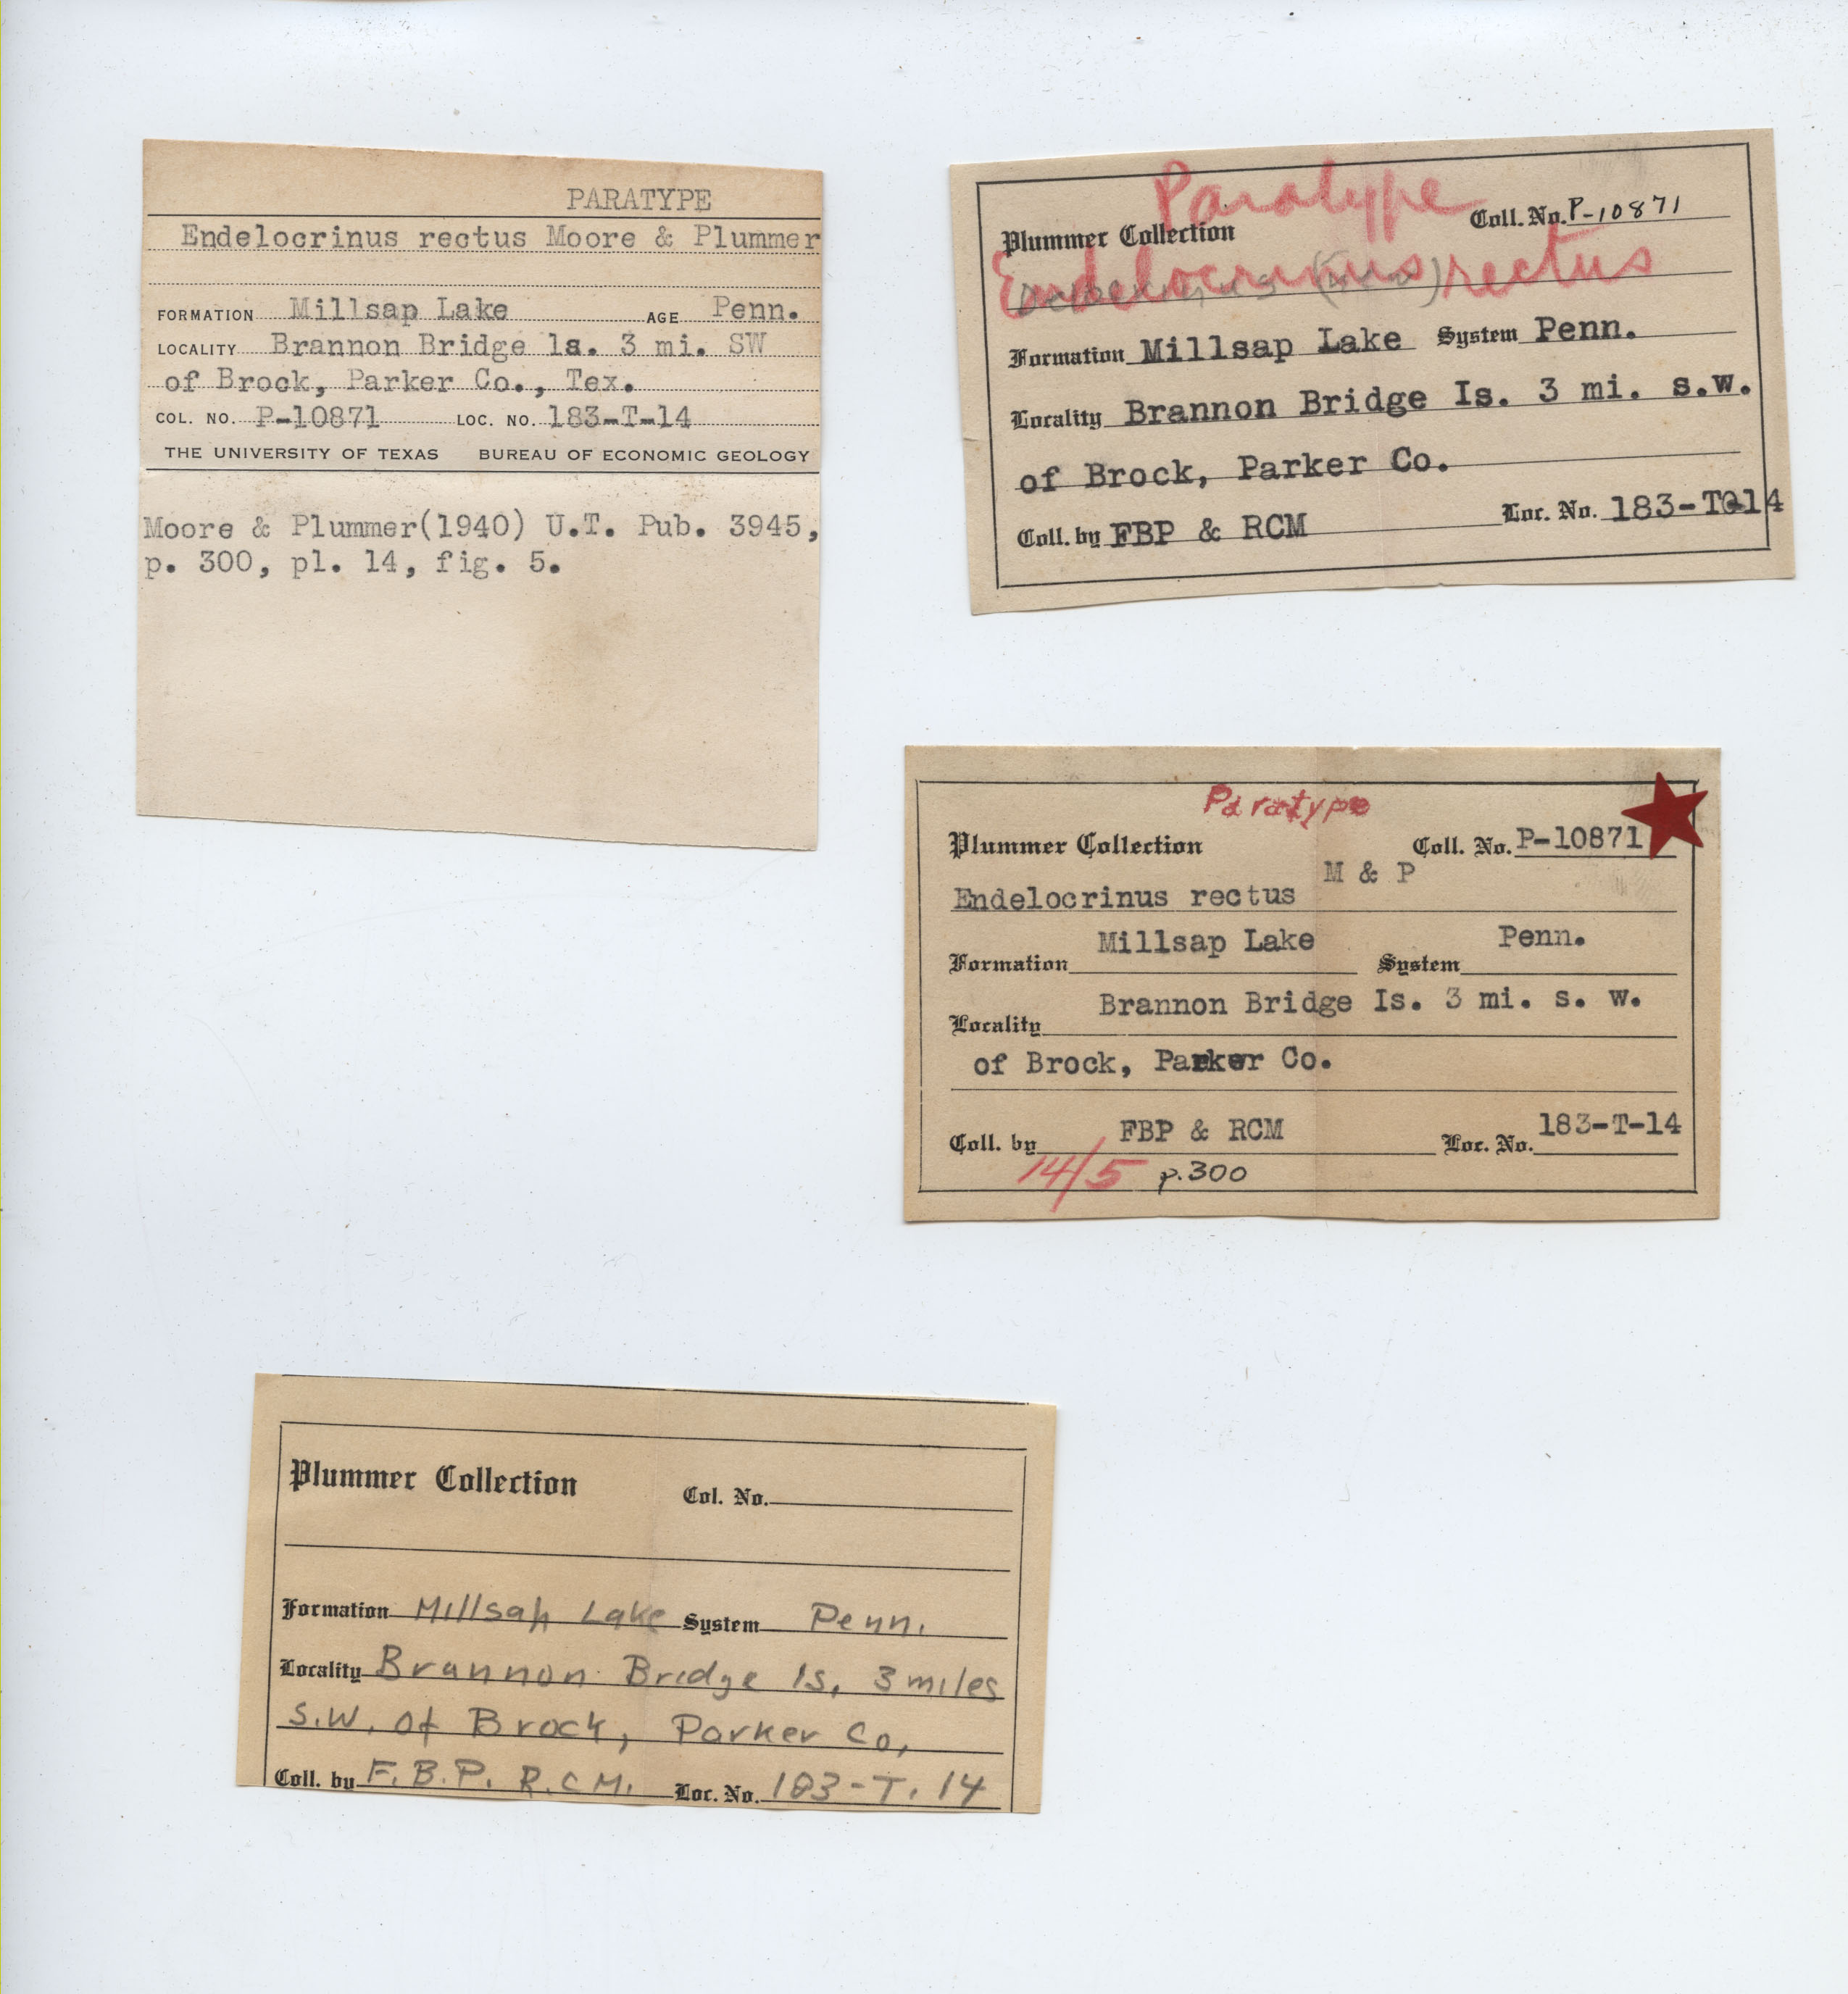 PARATYPE
Endelocrinus rectus Moore & Plummer
FORMATION Millsap Lake AGE Penn.
LOCALITY Brannon Bridge ls. 3 mi. SW
of Brock, Parker Co., Tex.
COL. NO. P-10871 LOC. NO. 183-T-14
THE UNIVERSITY OF TEXAS BUREAU OF ECONOMIC GEOLOGY
Moore & Plummer(1940) U.T. Pub. 3945,
p. 300, pl. 14, fig. 5.
Paratype
Plummer Collection Coll. No. P-10871
Endelocrinus rectus
Formation Millsap Lake System Penn.
Locality Brannon Bridge Is. 3 mi. s.w.
of Brock, Parker Co.
Coll. by FBP & RCM Loc. No. 183-T-14
Paratype
Plummer Collection Coll. No. P-10871
M & P
Endelocrinus rectus
Formation Millsap Lake System Penn.
Locality Brannon Bridge Is. 3 mi. s. w.
of Brock, Parker Co.
Coll. by FBP & RCM Loc. No. 183-T-14
14/5 p.300
Plummer Collection Col. No.
Formation Millsap Lake System Penn.
Locality Brannon Bridge ls, 3 miles
S.W. of Brock, Parker Co,
Coll. by F.B.P. R.C.M. Loc. No. 183-T. 14